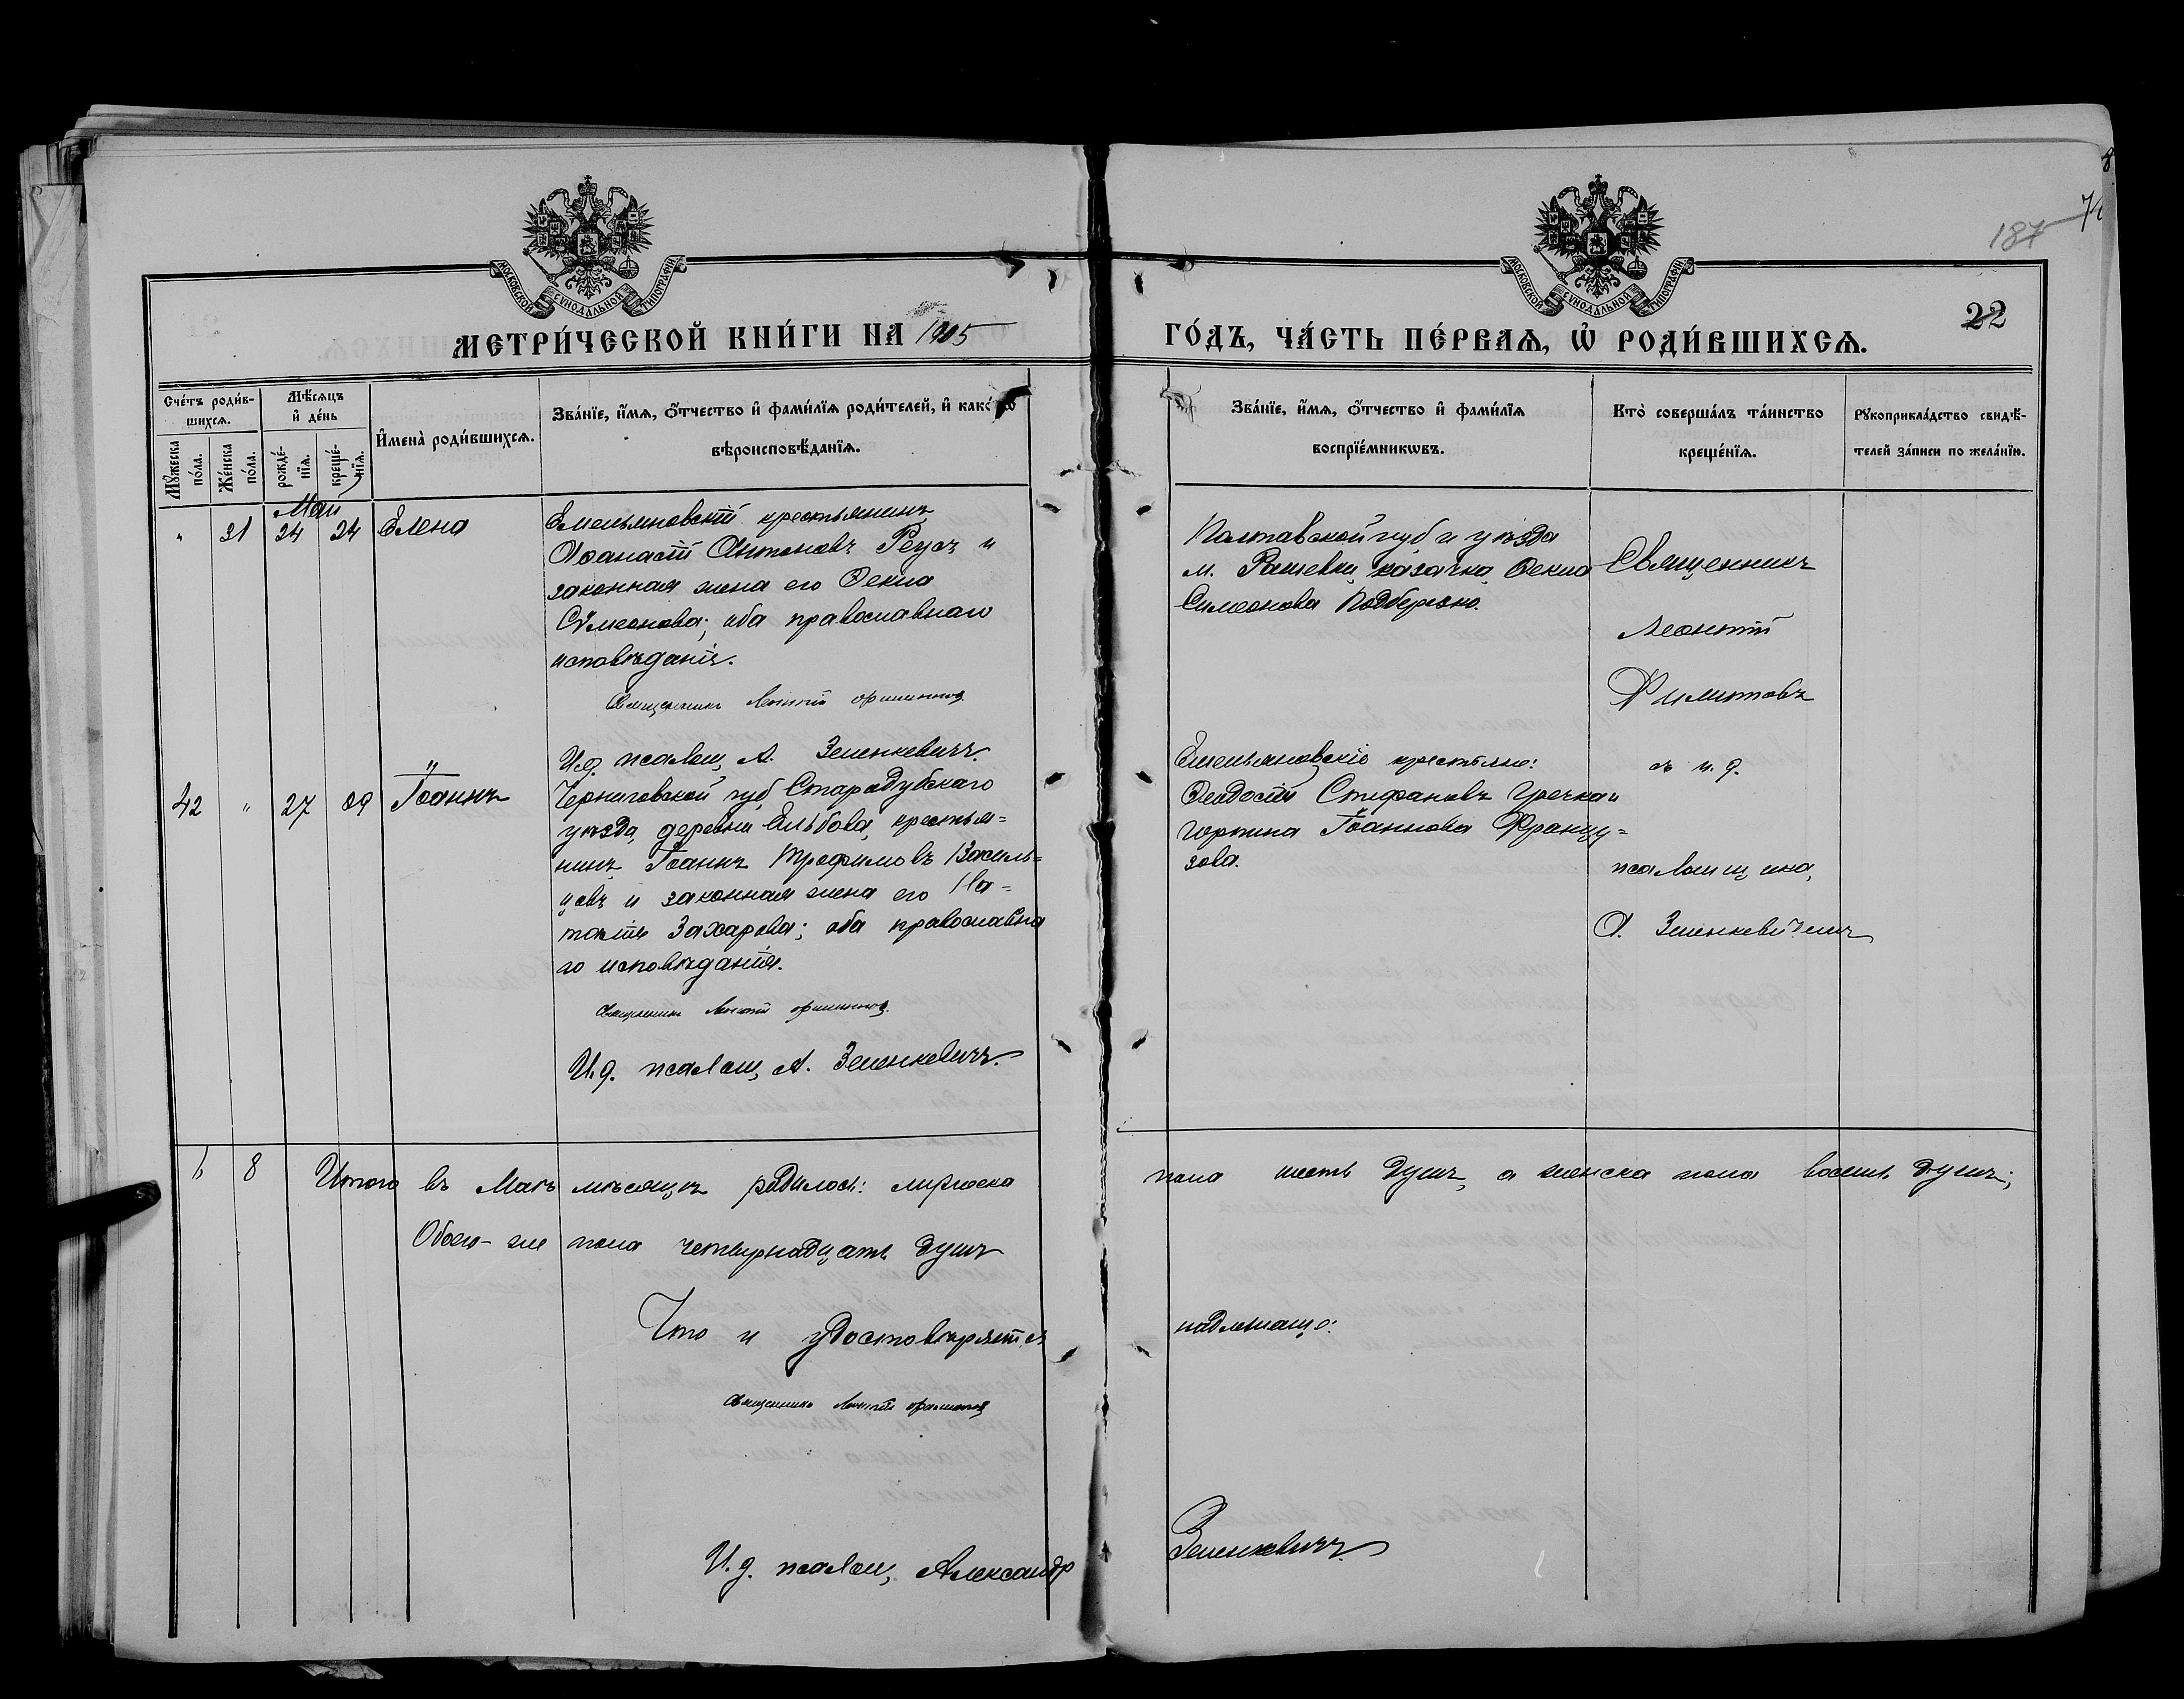 187
22
МОСКОВСКОЙ СѴНОДАЛЬНОЙ ТИПОГРАФІИ
МОСКОВСКОЙ СѴНОДАЛЬНОЙ ТИПОГРАФІИ
МЕТРИ́ЧЕСКОЙ КНИ́ГИ НА 1905 ГО́ДЪ, ЧА́СТЬ ПЕ́РВАѦ, Ѡ҆ РОДИ́ВШИХСѦ.
Сче́тъ роди́в-
шихсѧ.
Мѣ́сѧцъ
и҆ де́нь
Мꙋ́жеска
по́ла.
Же́нска
по́ла.
рожде́-
нїѧ.
креще́-
нїѧ.
И҆мена̀ роди́вшихсѧ.
Зва́нїе, и҆́мѧ, о҆́тчество и҆ фами́лїѧ роди́телей, и҆ како́гѡ
вѣроисповѣ́данїѧ.
Зва́нїе, и҆́мѧ, о҆́тчество и҆ фами́лїѧ
воспрїе́мникѡвъ.
Кто̀ соверша́лъ та́инство
креще́нїѧ.
Рꙋкоприкла́дство свидѣ́-
телей за́писи по жела́нїю.
Май
" 21 24 24 Елена
Емельяновскій крестьянинъ
Аѳанасій Антоновъ Реусъ и
законная жена его Ѳекла
Сѵмеонова; оба православнаго
исповѣданія.
Священникъ Леонтій Филиповъ
И.д. псаломщ. А. Зеленкевичъ.
Полтавской губ и уѣзда
м. Рашевки казачка Ѳекла
Симеонова Подберезко.
Священникъ
Леонтій
Филиповъ
съ и. д.
псаломщика,
А. Зеленкевичемъ
42 " 27 29 Іоаннъ
Черниговской губ Стародубскаго
уѣзда, деревни Ельбова, крестья=
нинъ Іоаннъ Трофимовъ Василь=
цовъ и законная жена его На=
талія Захарова; оба православна
го исповѣданія.
Священникъ Леонтій Филиповъ
И.д. псаломщ. А. Зеленкевичъ.
Емельяновскіе крестьяне:
Ѳеодосій Стефановъ Гречка и
Горпина Іоаннова Францу=
зова.
6 8 Итого въ Маѣ мѣсяцѣ родилось: мужеска пола шесть душъ, а женска пола восемь душъ;
Обоего-же пола четырнадцать душъ
Что и удостовѣряется надлежаще:
Священникъ Леонтій Филиповъ
И.д. псаломщ. Александр Зеленкевичъ